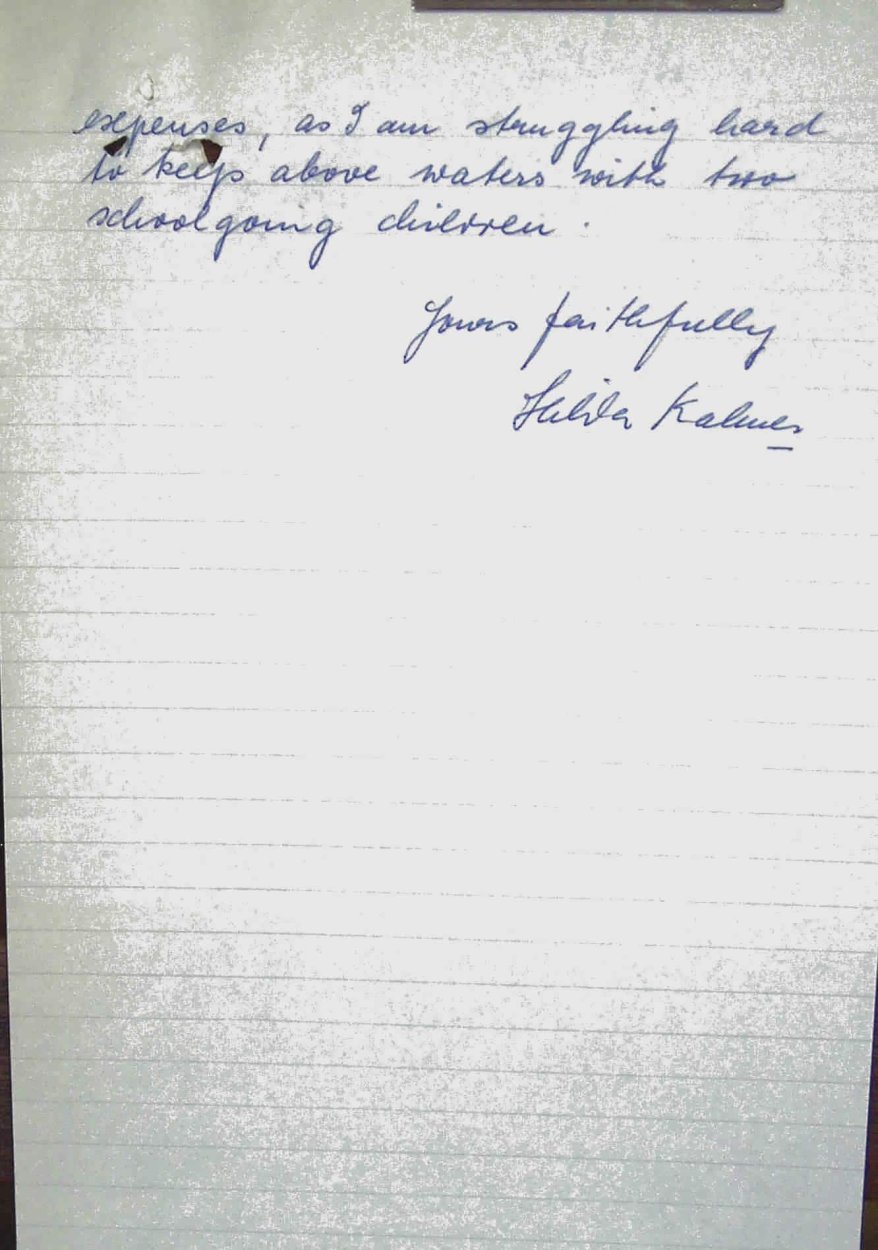 expenses, as I am struggling hard
to keep above waters with two
schoolgoing children.
Yours faithfully
Hilda Kalmer